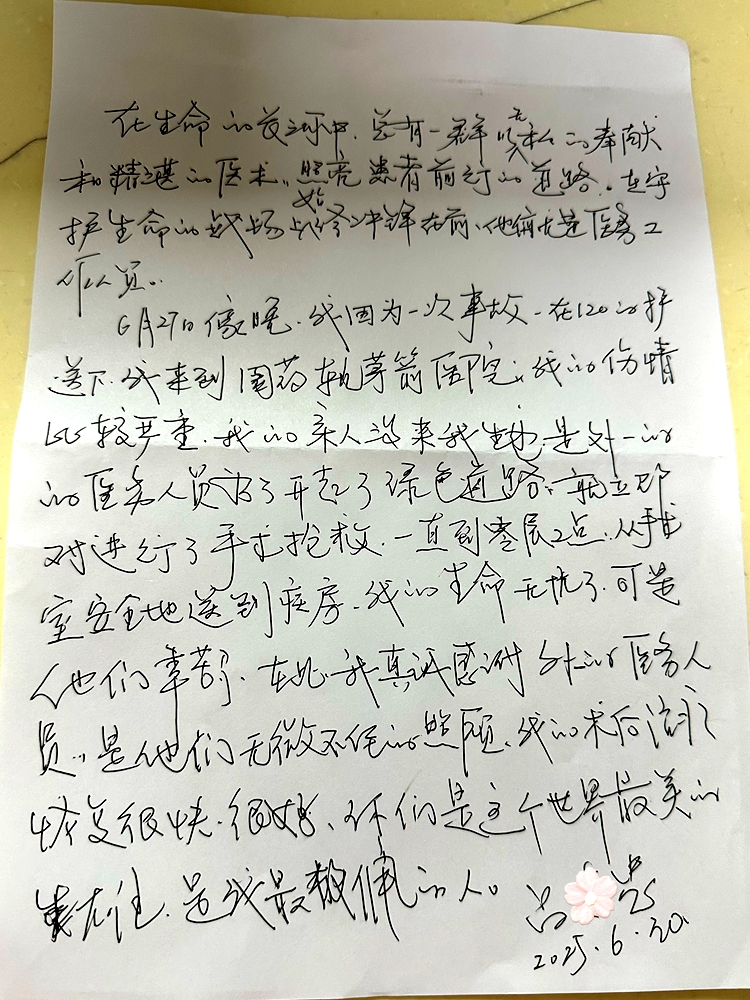 在生命的长河中，总有一群以无私的奉献
和精湛的医术，照亮患者前行的道路。在守
护生命的战场始终冲锋在前、他们就是医务工
作人员。
6月27日傍晚，我因为一次事故，在120的护
送下，我来到国药东风茅箭医院，我的伤情
比较严重，我的亲人没来我身边，是外一的
的医务人员为了开起了绿色道路，就立即
对进行了手术抢救，一直到零晨2点，从手术
室安全地送到病房，我的生命无忧了，可是
他们辛苦了，在此，我真诚感谢外一的医务人
员，是他们无微不至的照顾，我的术后治疗
恢复很快、很好、你们是这个世界最美的
是我最敬佩的人。
吕
2025.6.30